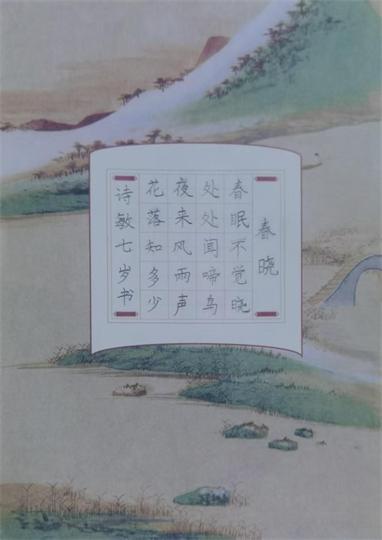 春晓
春眠不觉晓
处处闻啼鸟
夜来风雨声
花落知多少
诗敏七岁书